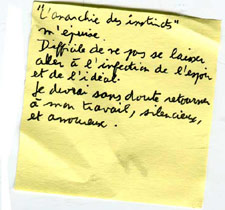 "L'anarchie des instincts"
m'épuise.
Difficile de ne pas se laisser
aller à l'infection de l'espoir
et de l'idéal.
Je devrai sans doute retourner
à mon travail, silencieux,
et amoureux.